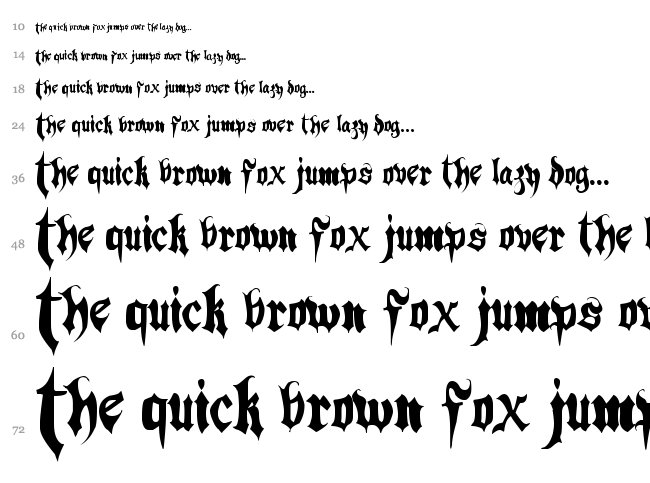 10 the quick brown fox jumps over the lazy dog...
14 the quick brown fox jumps over the lazy dog...
18 the quick brown fox jumps over the lazy dog...
24 the quick brown fox jumps over the lazy dog...
36 the quick brown fox jumps over the lazy dog...
48 the quick brown fox jumps over the l
60 the quick brown fox jumps ov
72 the quick brown fox jump